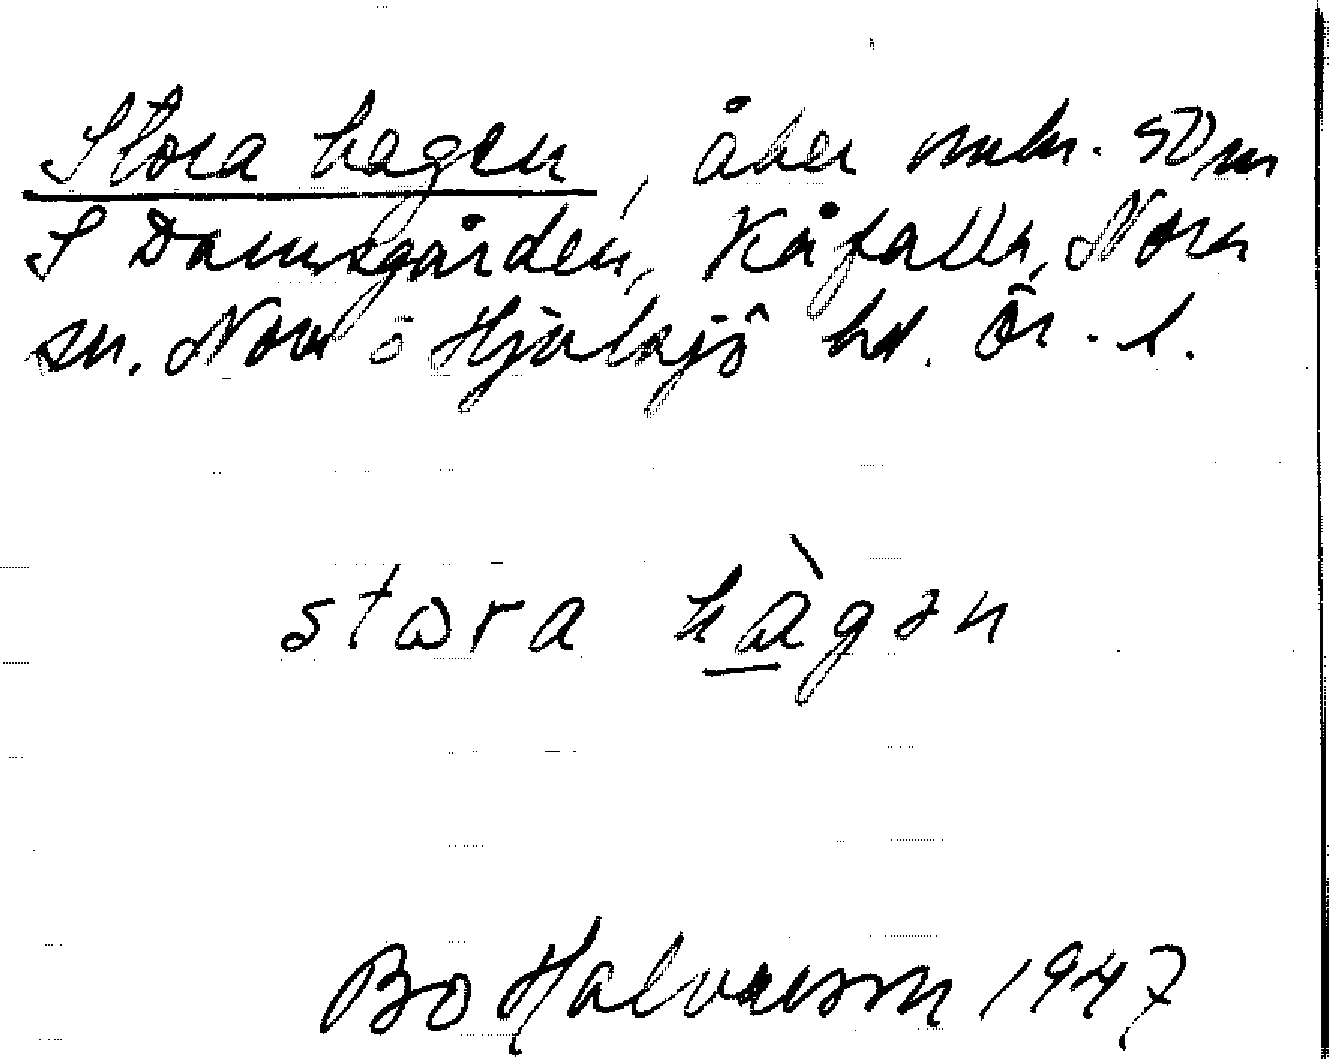 Stora hagen, åker omkr. 50 m
S Damsgården, Kåfalla, Nora
sn. Nora o Hjulsjö hd. Ör. l.
stora hàgən
Bo Halvarson 1947